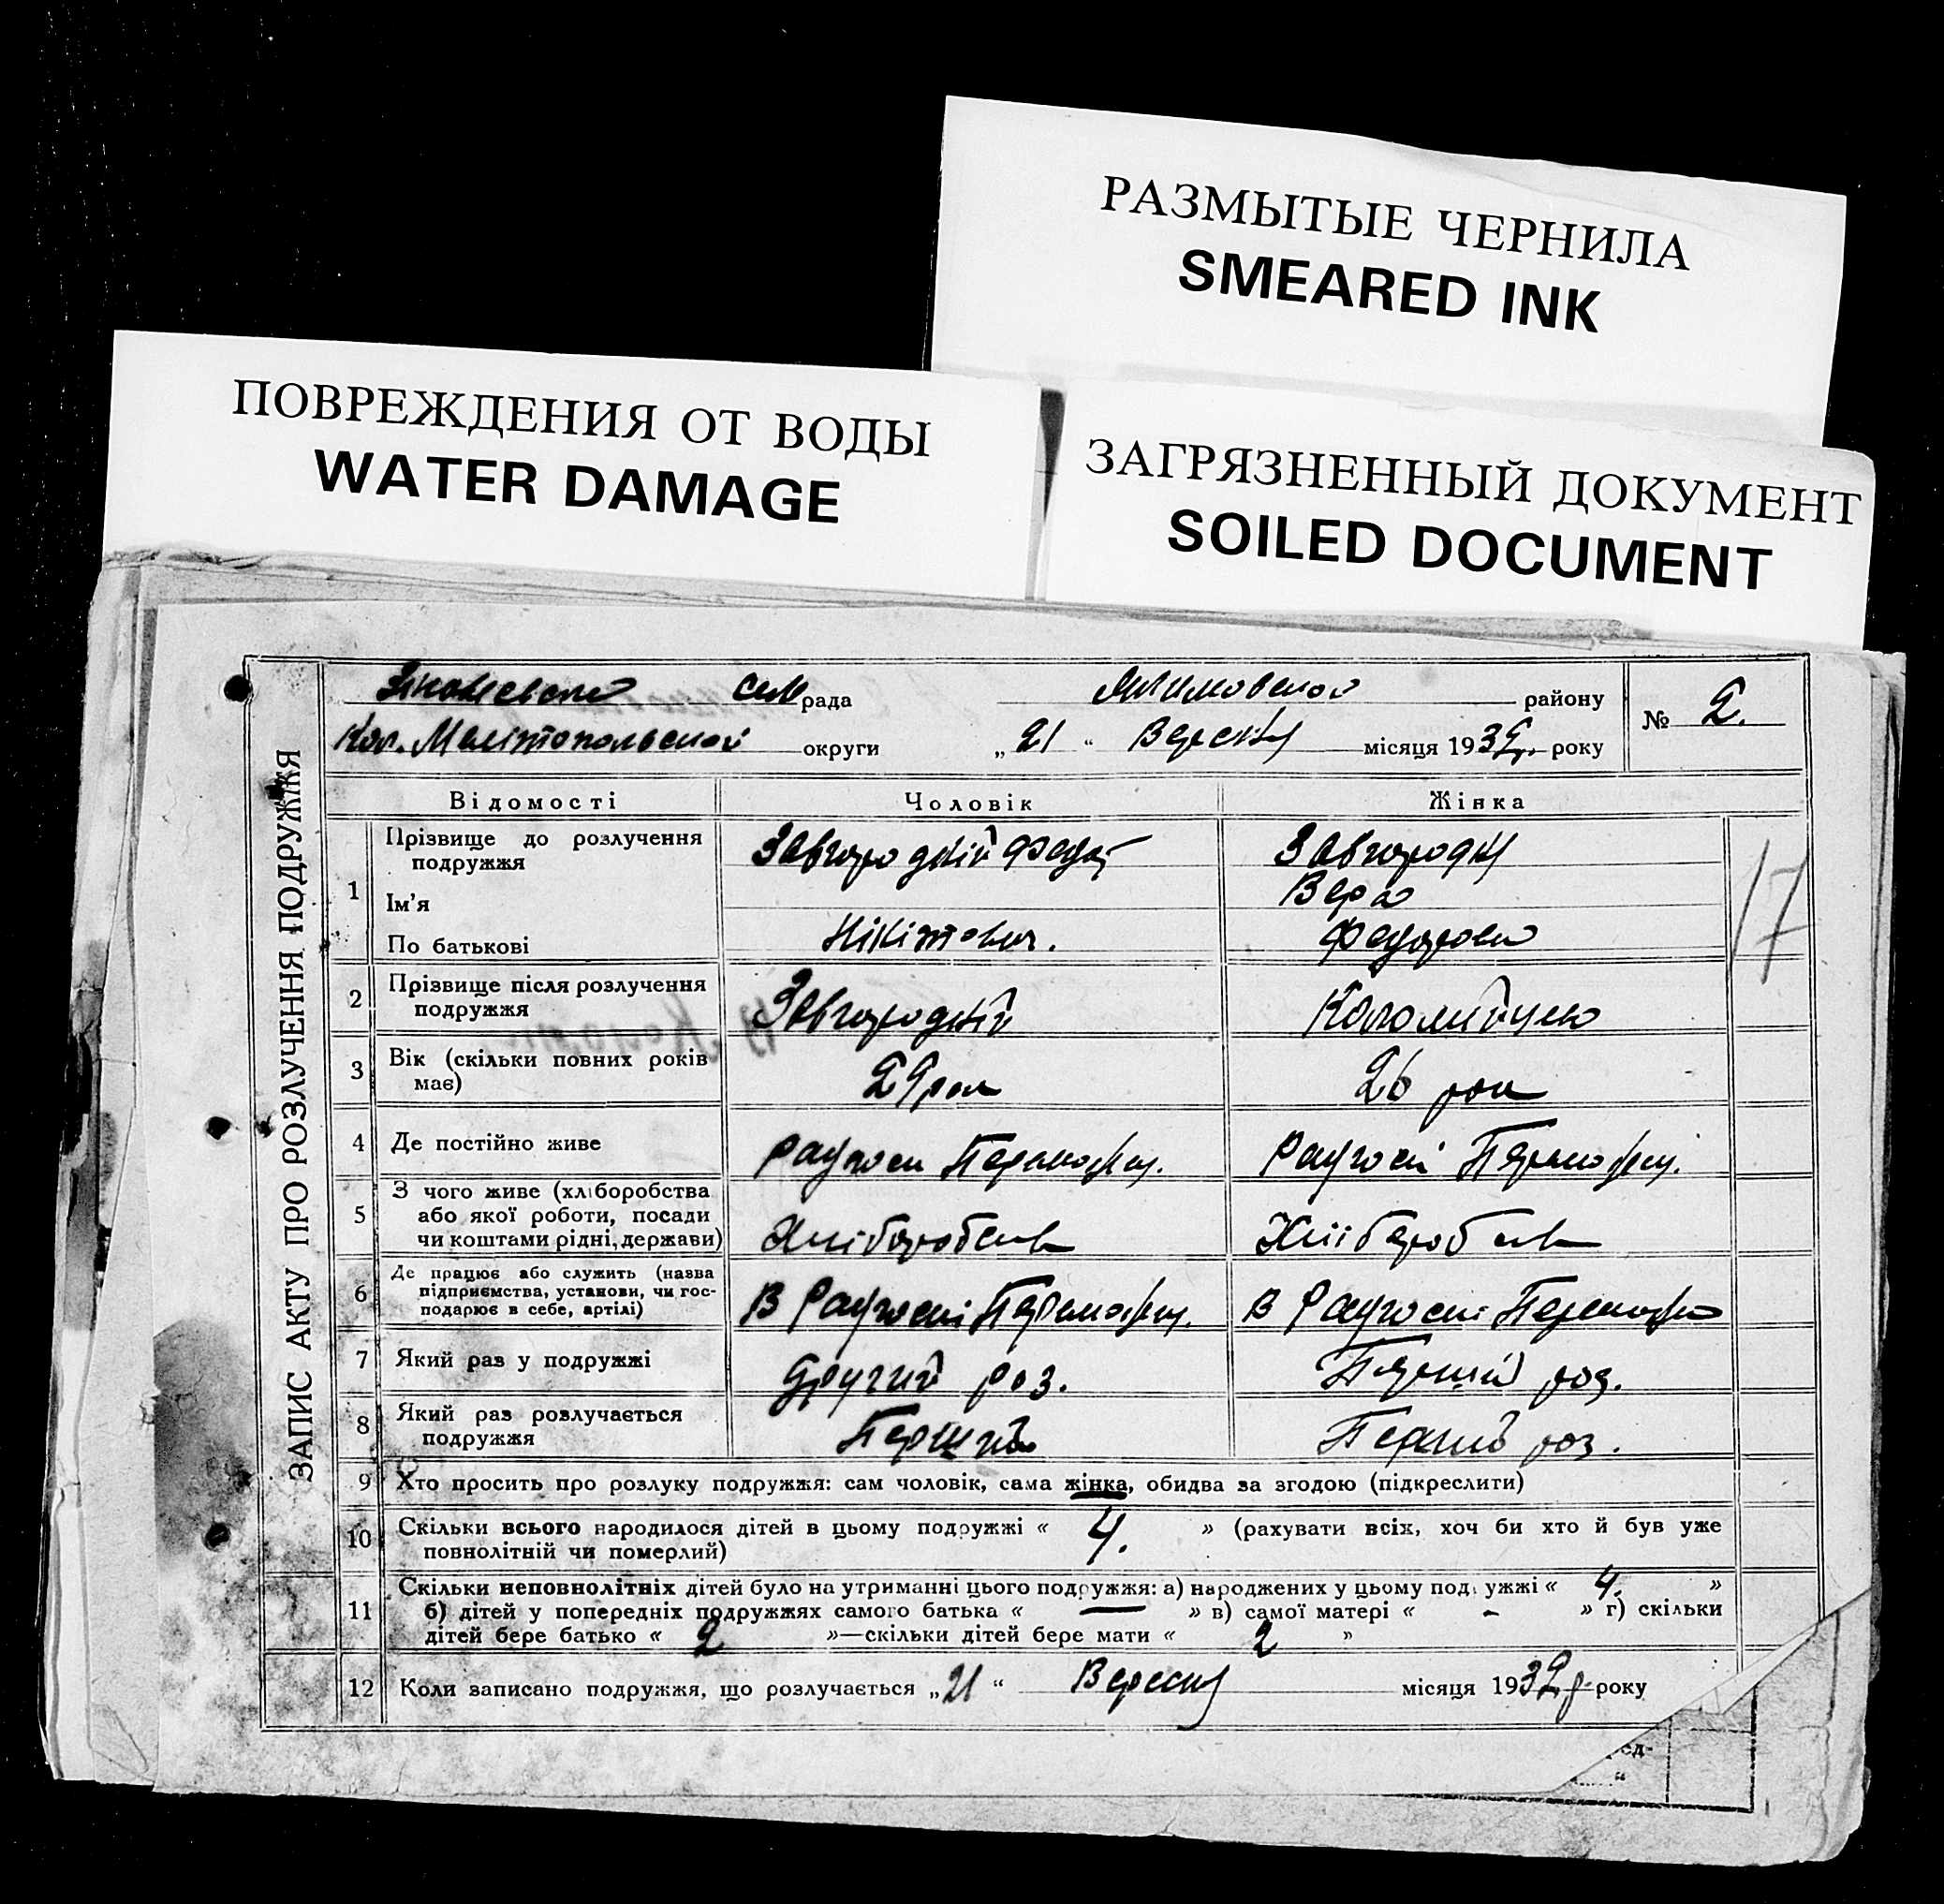 РАЗМЫТЫЕ ЧЕРНИЛА
SMEARED INK
ПОВРЕЖДЕНИЯ ОТ ВОДЫ
WATER DAMAGE
ЗАГРЯЗНЕННЫЙ ДОКУМЕНТ
SOILED DOCUMENT
ЗАПИС АКТУ ПРО РОЗЛУЧЕННЯ ПОДРУЖЖЯ
рада району
№ 2.
Мелітопольской округи „21“ Вересня місяця 1932р. року
Відомості Чоловік Жінка
1 Прізвище до розлучення подружжя Завгородній Федор Завгородня
Ім'я Вера
По батькові Нікітович. Федоровна
17
2 Прізвище після розлучення подружжя Завгородній
3 Вік (скільки повних років має) 29 рок 26 рок
4 Де постійно живе
5 З чого живе (хліборобства
або якої роботи, посади
чи коштами рідні, держави)
6 Де працює або служить (назва
підприємства, установи, чи гос-
подарює в себе, артілі) В В
7 Який раз у подружжі Другий раз. Перший раз.
8 Який раз розлучається подружжя Перший Перший раз.
9 Хто просить про розлуку подружжя: сам чоловік, сама жінка, обидва за згодою (підкреслити)
10 Скільки всього народилося дітей в цьому подружжі « 4. » (рахувати всіх, хоч би хто й був уже
повнолітній чи померлий)
11 Скільки неповнолітніх дітей було на утриманні цього подружжя: а) народжених у цьому подружжі « 4. »
б) дітей у попередніх подружжях самого батька « — » в) самої матері « - » г) скільки
дітей бере батько « 2 »—скільки дітей бере мати « 2 »
12 Коли записано подружжя, що розлучається „21“ Вересня місяця 1932р. року